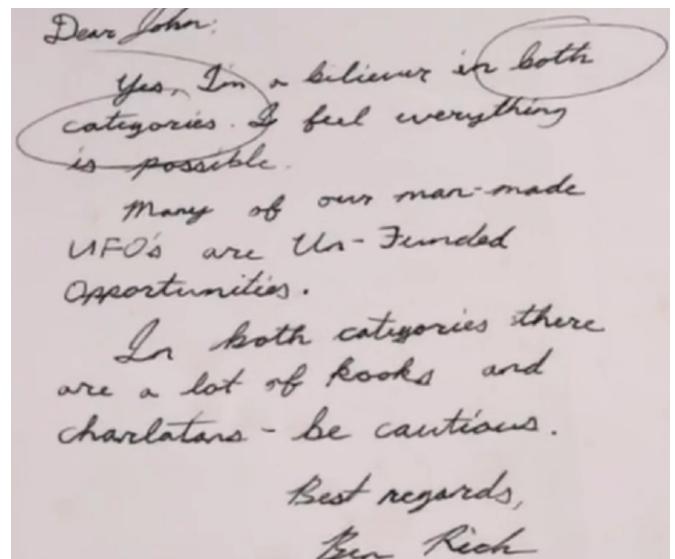 Dear John:
Yes, I'm a beliewer in both
categories. I feel everything
is possible.
Many of our man-made
UFO's are Un-Funded
Opportunities.
In both categories there
are a lot of kooks and
charlatans - be cautious.
Best regards,
Ben Rich